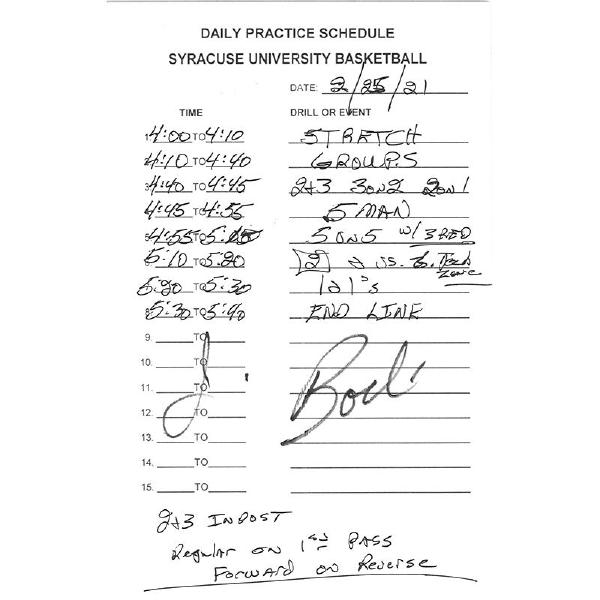 DAILY PRACTICE SCHEDULE
SYRACUSE UNIVERSITY BASKETBALL
DATE: 2/25/21
TIME DRILL OR EVENT
1. 4:00 TO 4:10 STRETCH
4:10 TO 4:40 GROUPS
3. 4:40 TO 4:45 2+3 3 ON 2 2 ON 1
4:45 TO 4:55 5 MAN
4:55 TO 5:10 5 ON 5 w/ 3 RED
5:10 TO 5:20 2 2 vs. G. Tech Zone
5:20 TO 5:30 1 2 1's
8. 5:30 TO 5:40 END LINE
9. TO
10. TO
11. TO
12. TO
13. TO
14. TO
15. TO
J. Boeh
2+3 IN POST
Regular on 1st PASS
Forward on Reverse